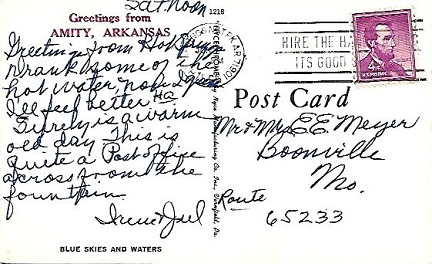 Sat Noon
1218
Greetings from
AMITY, ARKANSAS
Greetings from Hot Springs
Drank some of the
hot water, now I guess
I'll feel better. Ha
Surely is a warm
old day. This is
quite a Post office
across from the
fountain.
Irene & Joel
BLUE SKIES AND WATERS
HIRE THE HA
ITS GOOD
Post Card
Mr & Mrs E E Meyer
Boonville
Mo.
Route
65233